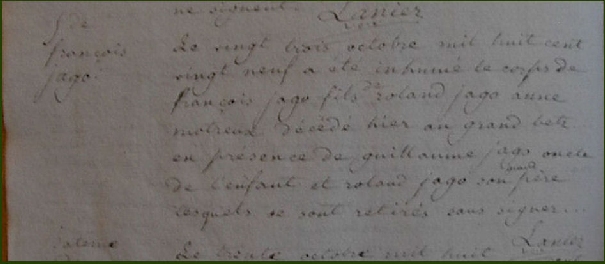 ne signent. Lanier
S. de
françois
jago.
Le vingt trois octobre mil huit cent
vingt neuf a été inhumé le corps de
françois jago fils de roland jago anne
motreux décédé hier au grand betz
en présence de guillaume jago oncle
de l'enfant et roland jago son père
lesquels se sont retirés sans signer...
Lanier
Le trente octobre mil huit cent